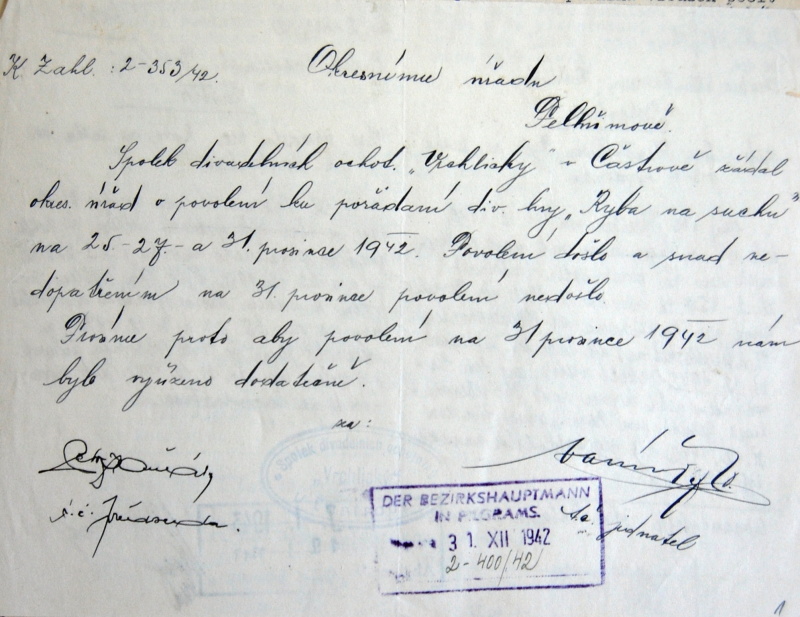 K. Zahl. : 2-353/42.
Okresnímu úřadu
Pelhřimově.
Spolek divadelních ochot. „Vrchlický" v Častrově žádal
okres. úřad o povolení ku pořádání div. hry „Ryba na suchu"
na 25.-27.- a 31. prosince 1942. Povolení došlo a snad ne-
dopatřením na 31. prosince povolení nedošlo.
Prosíme proto aby povolení na 31 prosince 1942 nám
bylo vyřízeno dodatečně.
za:
t.č. jednatel
DER BEZIRKSHAUPTMANN
IN PILGRAMS.
31. XII 1942
2-400/42
1